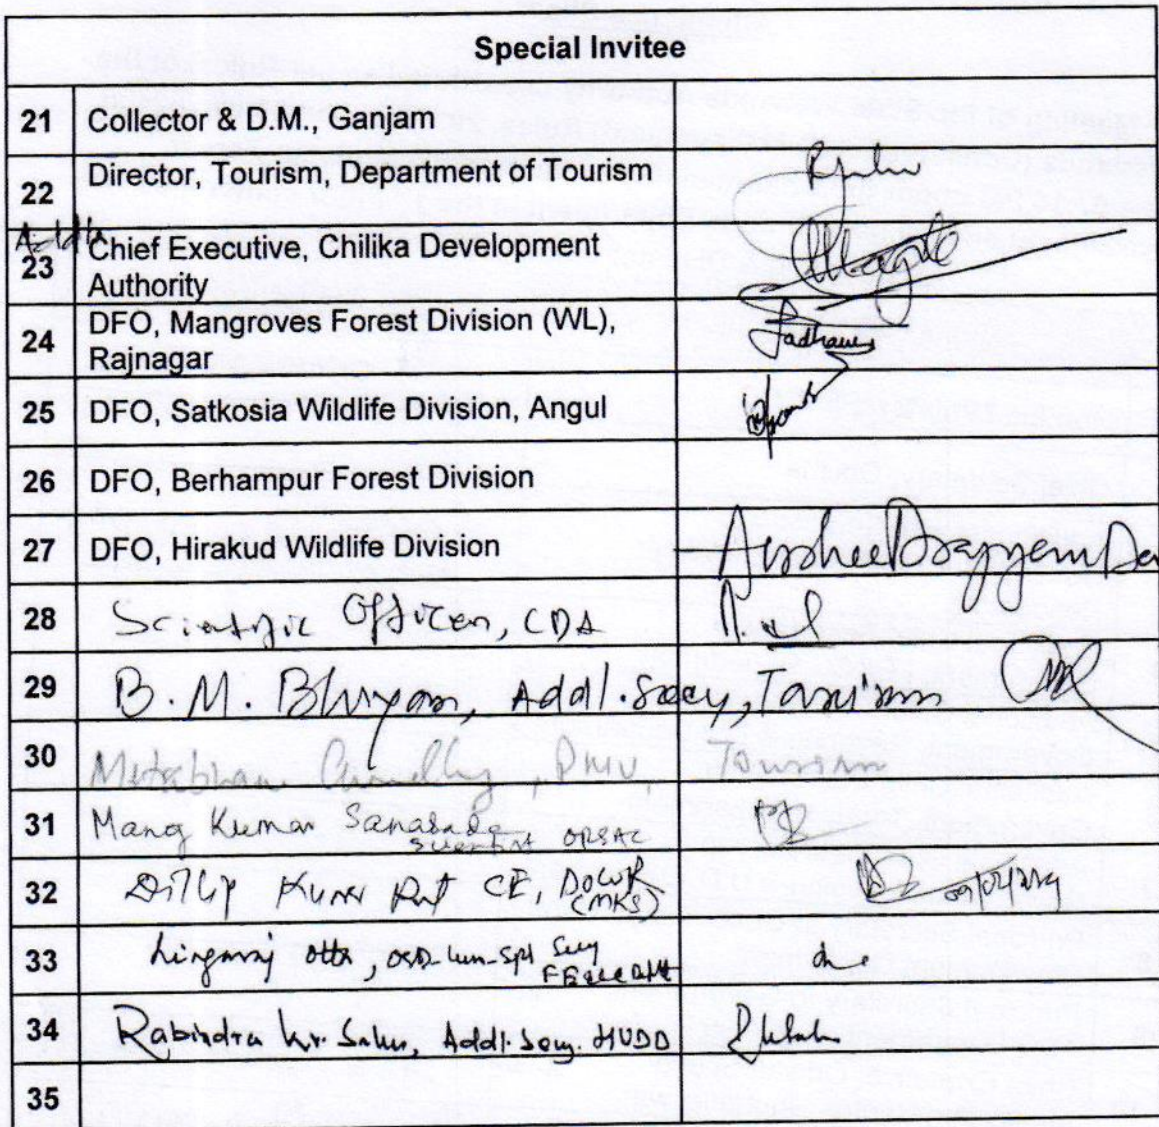 Special Invitee
21 Collector & D.M., Ganjam
22 Director, Tourism, Department of Tourism
Addl.
23 Chief Executive, Chilika Development
Authority
24 DFO, Mangroves Forest Division (WL),
Rajnagar
25 DFO, Satkosia Wildlife Division, Angul
26 DFO, Berhampur Forest Division
27 DFO, Hirakud Wildlife Division
28 Scientific Officer, CDA
29 B. M. Bhuyan, Addl. Secy, Tourism
30 PMU, Tourism
31 Kumar
Scientist ORSAC
32 Dillip Kumar CE, DoWR
33 Lingaraj Otta, OSD-cum-Spl Secy
34 Rabindra Kr. Sahu, Addl. Secy. HUDD
35